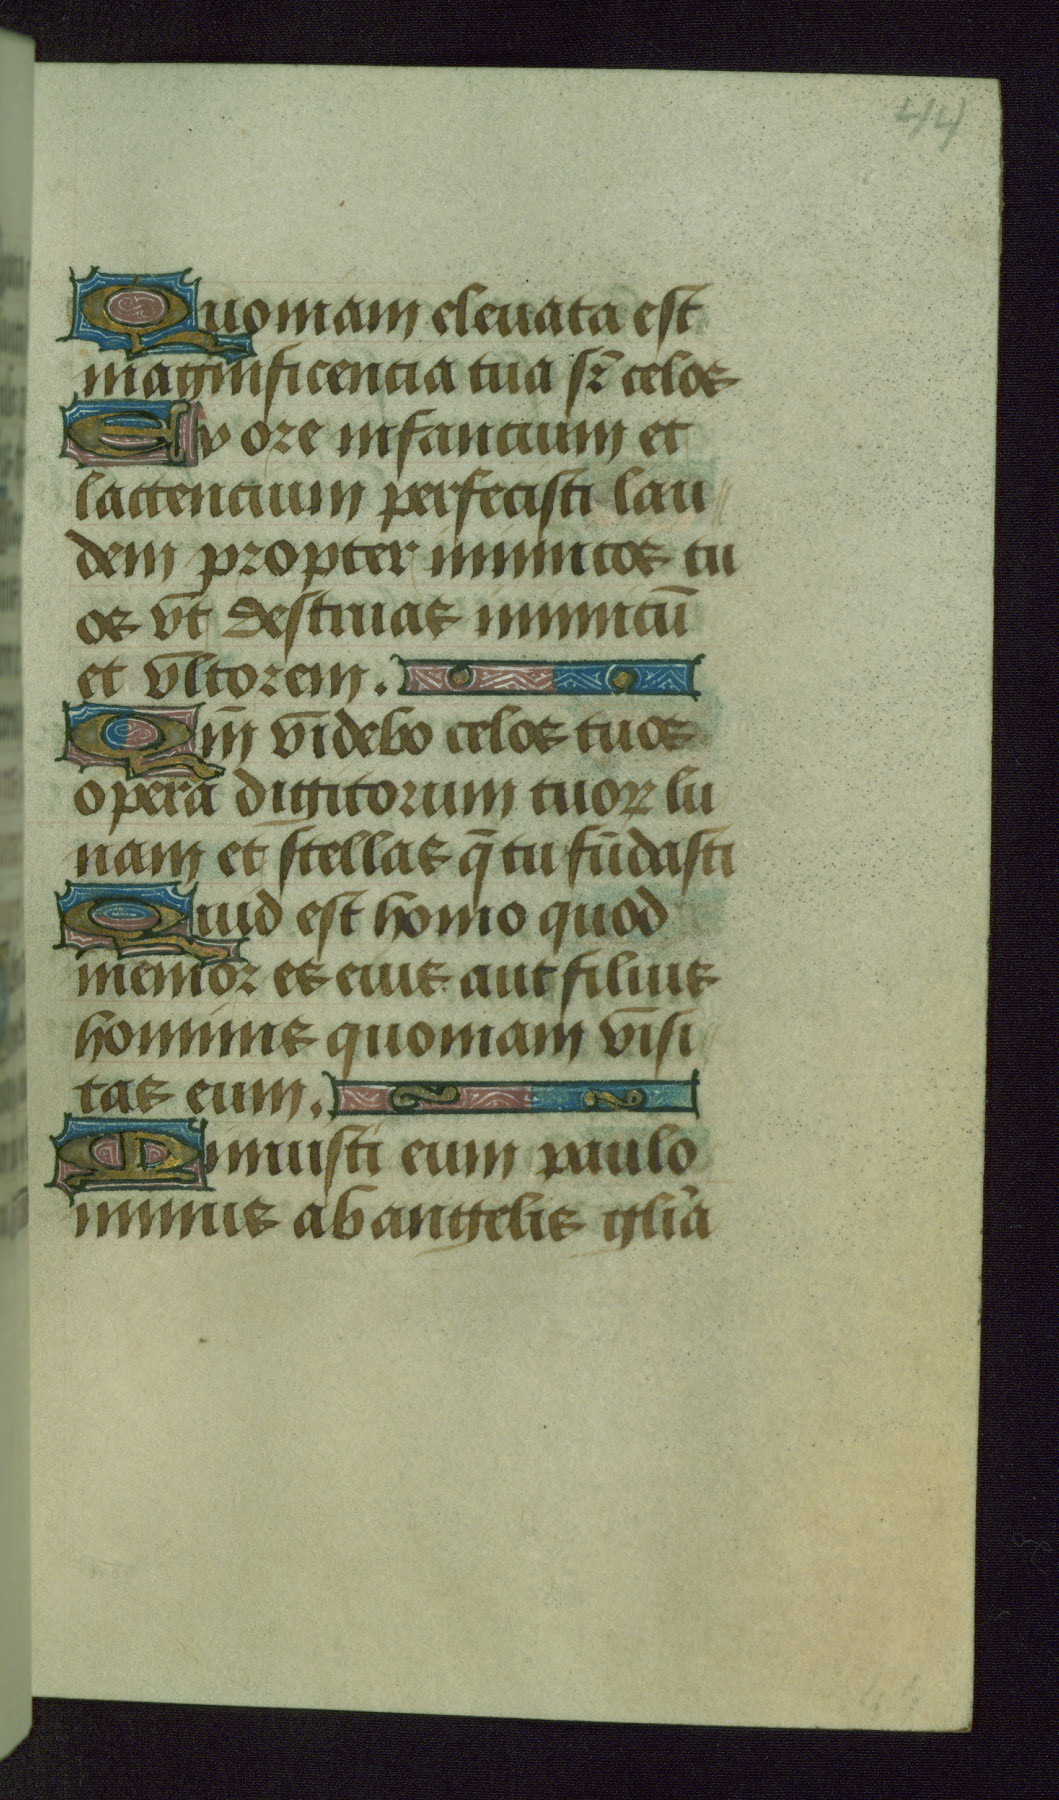 44
Quoniam eleuata est
magnificencia tua sr̄ celos
Ex ore infancium et
lactencium perfecisti lau
dem propter inimicos tu
os vt destruas inimicū
et vltorem.
Qm̄ videbo celos tuos
opera digitorum tuoꝝ lu
nam et stellas q̄ tu fūdasti
Quid est homo quod
memor es eius aut filius
hominis quoniam visi
tas eum.
Minuisti eum paulo
minus ab angelis gl̄ia